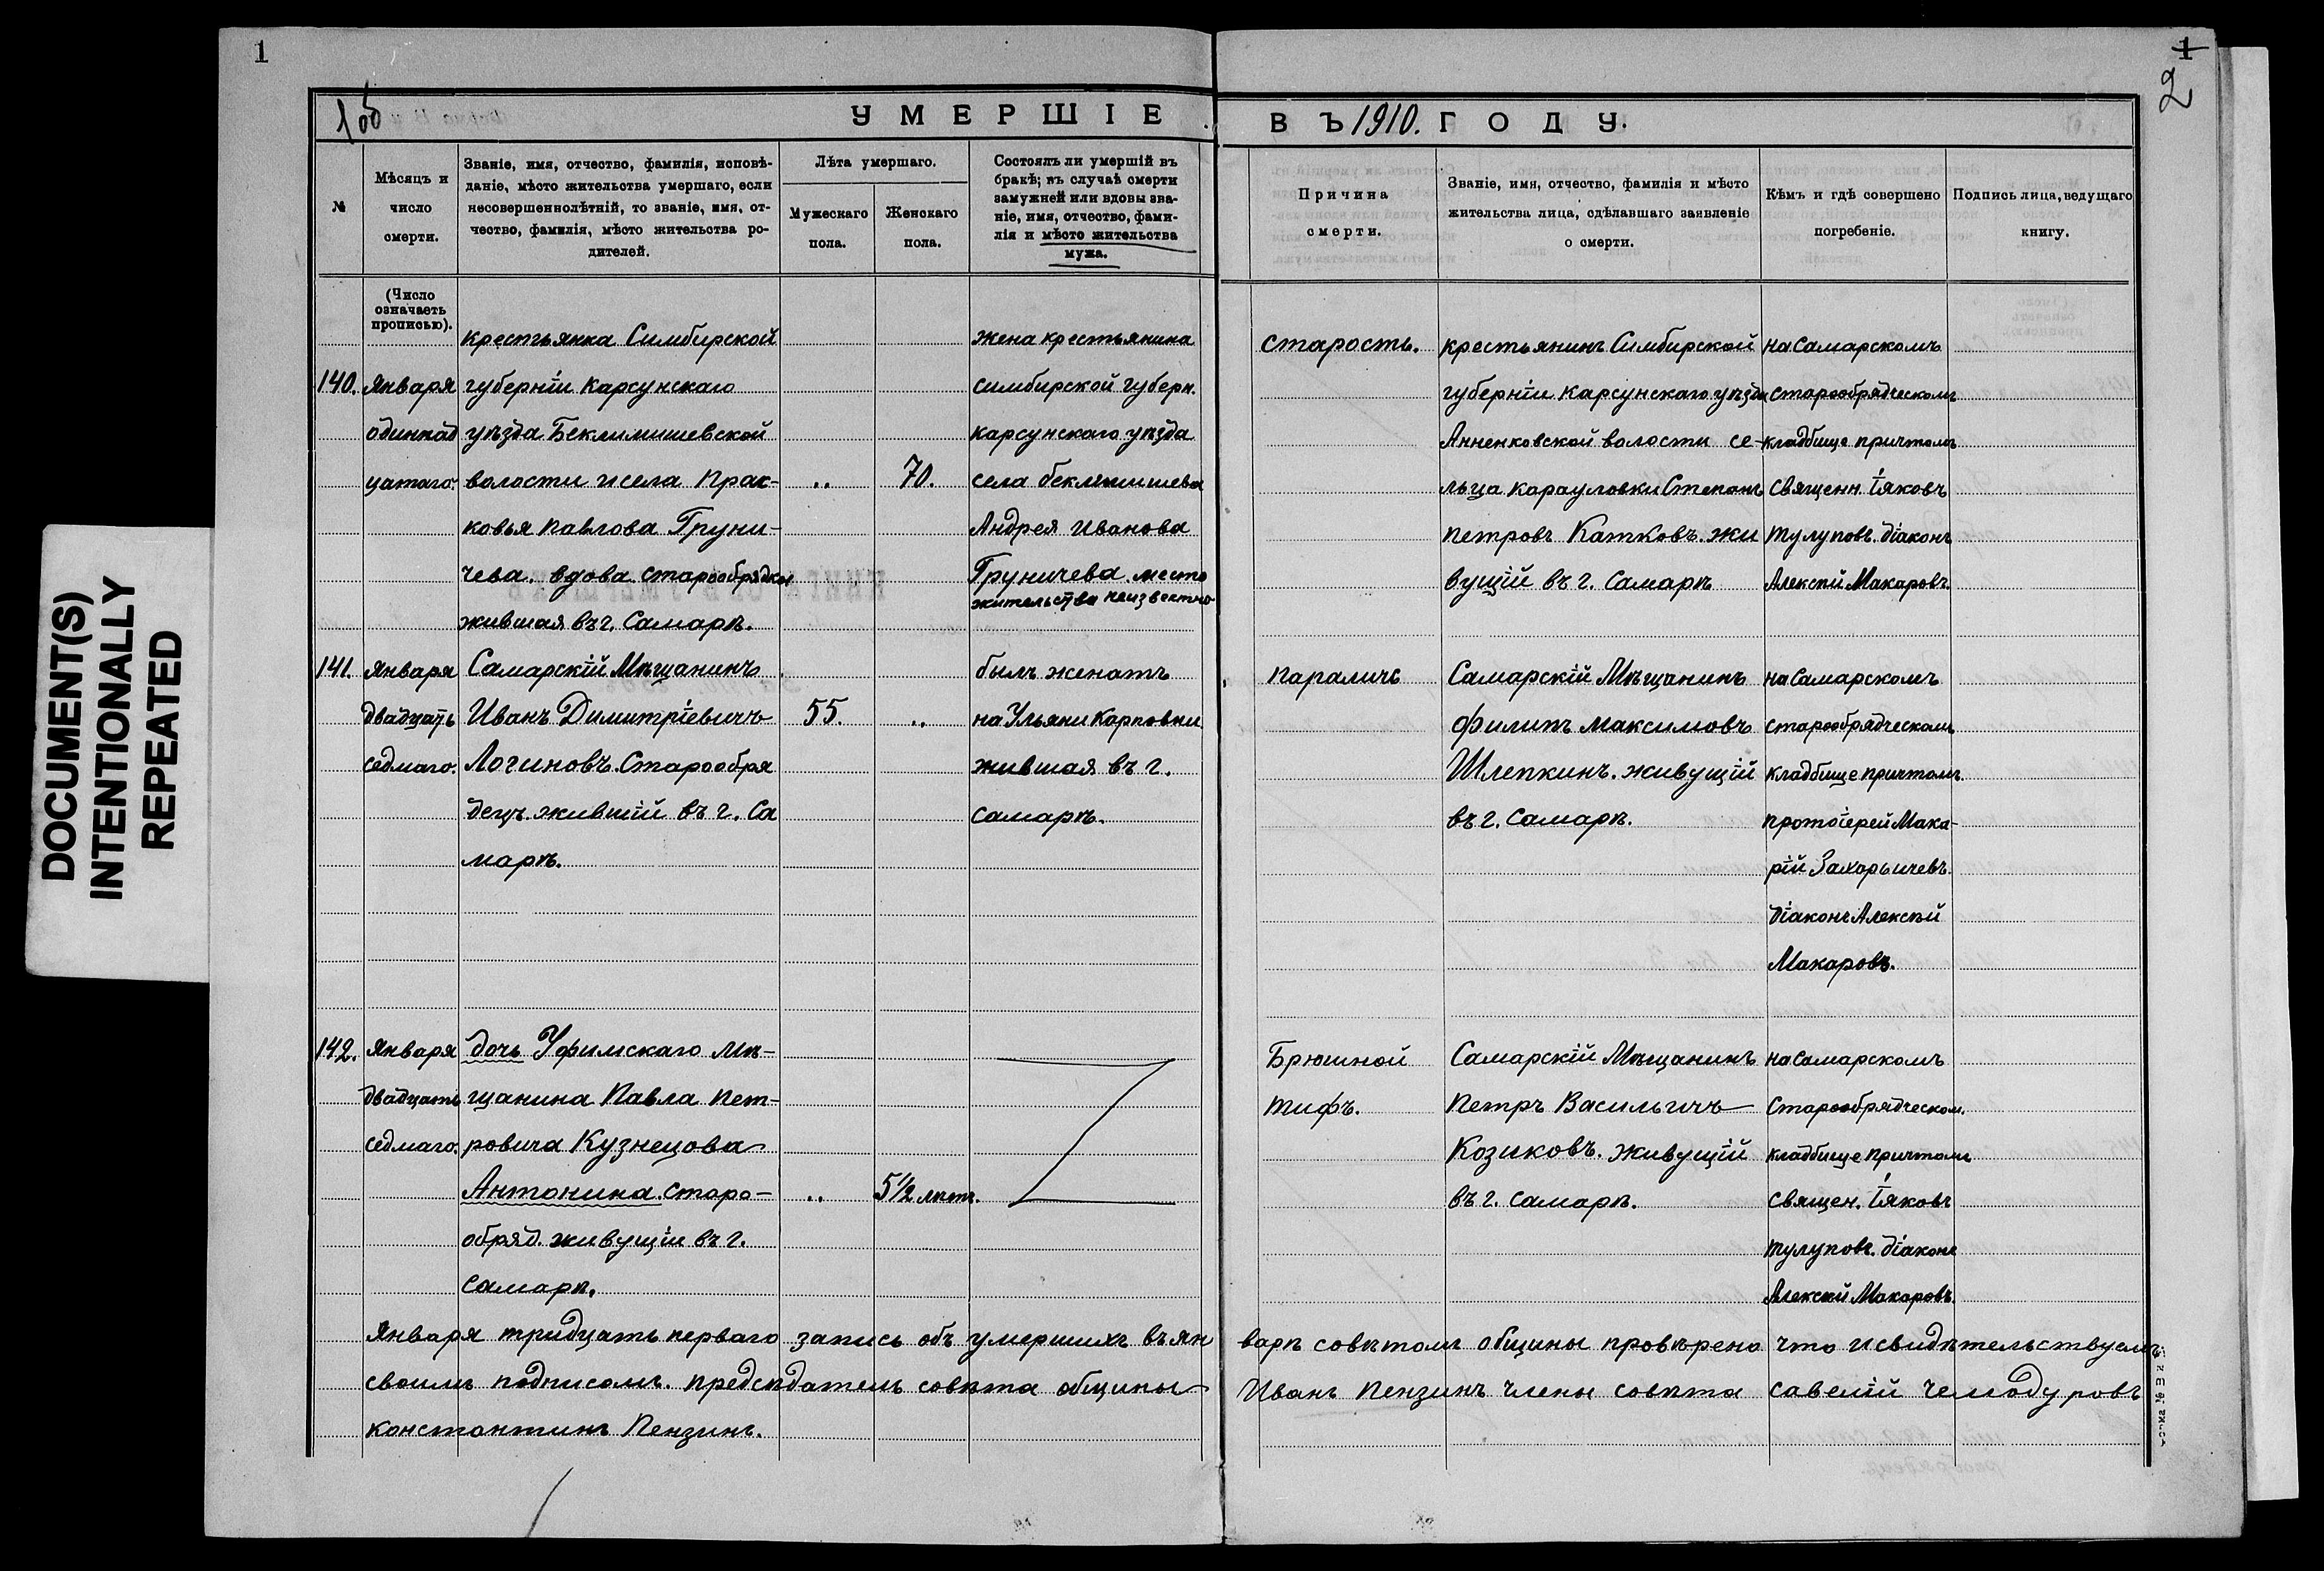 1
1
2
100
УМЕРШІЕ ВЪ 1910. ГОДУ.
№
Мѣсяцъ и
число
смерти.
Званіе, имя, отчество, фамилія, исповѣ-
даніе, мѣсто жительства умершаго, если
несовершеннолѣтній, то званіе, имя, от-
чество, фамилія, мѣсто жительства ро-
дителей.
Лѣта умершаго.
Мужескаго
пола.
Женскаго
пола.
Состоялъ ли умершій въ
бракѣ; въ случаѣ смерти
замужней или вдовы зва-
ніе, имя, отчество, фами-
лія и мѣсто жительства
мужа.
Причина
смерти.
Званіе, имя, отчество, фамилія и мѣсто
жительства лица, сдѣлавшаго заявленіе
о смерти.
Кѣмъ и гдѣ совершено
погребеніе.
Подпись лица, ведущаго
книгу.
(Число
означаетъ
прописью).
140.
Января
одиннад
цатаго.
крестьянка Симбирской
губерніи Карсунскаго
уѣзда Беклимишевской
волости и села Прас-
ковья Павлова Груни-
чева. вдова. старообрядка
жившая въ г. Самарѣ.
..
70.
жена крестьянина
симбирской губерн.
карсунскаго уѣзда
села беклемишева
Андрея Иванова
Груничева. место
жительства неизвестно
старость.
крестьянинъ Симбирской
губерніи Карсунскаго уѣзда
Анненковской волости се-
льца Карауловки Степанъ
Петровъ Катковъ. жи
вущій въ г. Самарѣ
на Самарскомъ
старообрядческомъ
кладбище причтомъ
Священн. Іяковъ
Тулуповъ. діаконъ
Алексѣй Макаровъ.
141.
Января
двадцать
седмаго.
Самарскій Мѣщанинъ
Иванъ Димитріевичъ
Логиновъ. Старообря
децъ. жившій въ г. Са
марѣ.
55.
..
былъ женатъ
на Ульяни Карповни
жившая въ г.
Самарѣ.
Параличъ
Самарскій Мѣщанинъ
Филипъ Максимовъ
Шлепкинъ. живущій
въ г. Самарѣ.
на Самарскомъ
старообрядческомъ
кладбище причтомъ.
протоіерей Мака-
рій Захарьичевъ.
діаконъ Алексѣй
Макаровъ.
142.
Января
двадцать
седмаго.
дочь Уфимскаго Мѣ-
щанина Павла Пет-
ровича Кузнецова
Антонина. старо-
обряд. живущіи въ г.
Самарѣ.
..
5½ лѣтъ.
Брюшной
тифъ.
Самарскій Мѣщанинъ
Петръ Васильичъ
Козиковъ. живущій
въ г. Самарѣ.
на Самарскомъ
Старообрядческом.
кладбище причтомъ
священ. Іяковъ
Тулуповъ. діаконъ
Алексѣй Макаровъ.
Января тридцать перваго запись объ умершихъ въ ян варѣ совѣтомъ общины провѣрено что и свидѣтельствуемъ
своимъ подписомъ. предсѣдатель совѣта общины Иванъ Пензинъ члены совѣта савелій Чемодуровъ
Константинъ Пензинъ.
DOCUMENT(S)
INTENTIONALLY
REPEATED